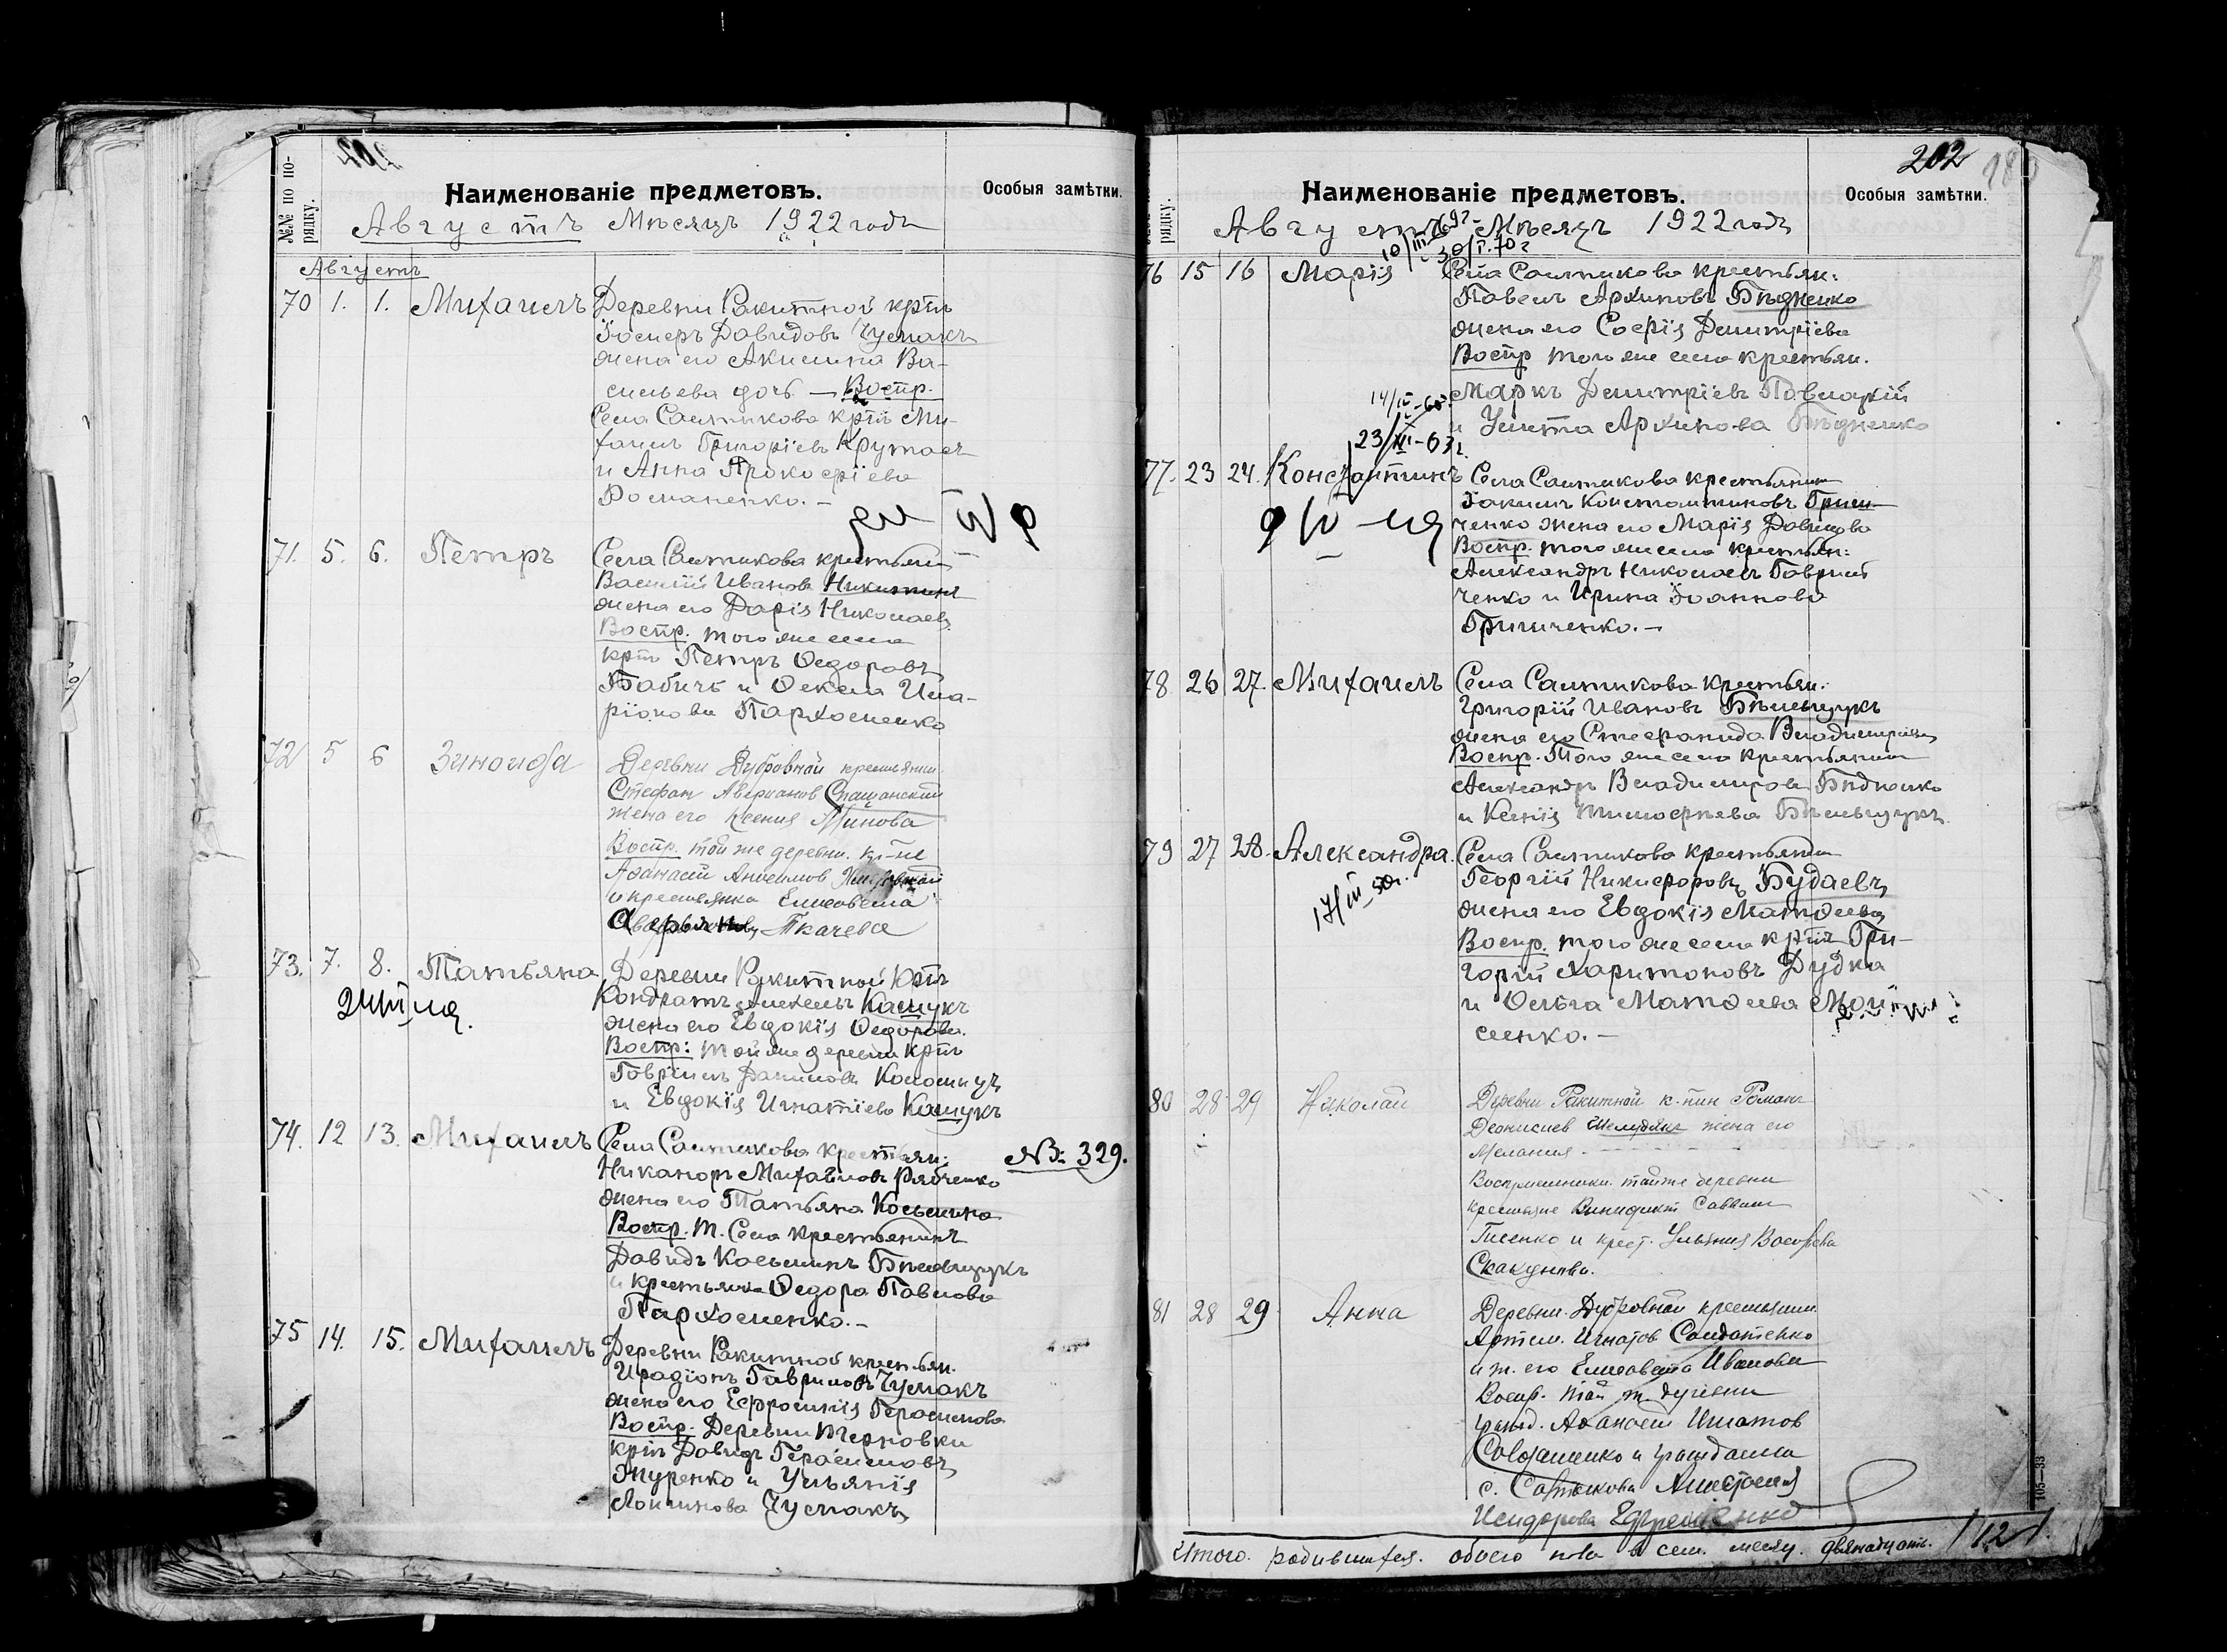 №№ по порядку.
Наименованіе предметовъ.
Особыя замѣтки.
Августъ Мѣсяцъ 1922 годъ
Августъ
70 1. 1. Михаилъ Деревни Ракитной крт
Іосифъ Давидовъ Чумакъ
жена его Акилина Ва-
сильева дочь — Воспр.
Села Салтикова крт Ми-
хаилъ Григоріевъ
и Анна Прокофіева
Романенко. —
71. 5. 6. Петръ Села Салтикова крестьян
Василій Иванов Никитинъ
жена его Дарія Николаев.
Воспр. того же села
крт Петръ Ѳедоровъ
Бабичъ и Ѳекла Ила-
ріонова Пархоменко
72 5 6 Зиноида Деревни Дубровной крестьянин
Стефан Аверианов Спащанский
жена его Ксения Минова
Воспр. той же деревни. кр-не
Афанасий Анисимов
и крестьянка Елисовета
Ткачева
73. 7. 8. Татьяна Деревни Ракитной Крт
Кондратъ Кашукъ
жена его Евдокія Ѳедорова.
Воспр: той же деревни крт
Гавріилъ Даниловъ Коломыцъ
и Евдокія Игнатіева Кашукъ
74. 12 13. Михаилъ Села Салтикова крестьян:
№ 329.
Никаноръ Михайловъ Рябченко
жена его Татьяна Косьмина
Воспр. т. Села крестьянинъ
Давидъ Косьминъ Бѣльщукъ
и крестьянка Ѳедора Павлова
Пархоменко. —
75 14. 15. Михаилъ Деревни Ракитной крестьян.
Иродіонъ Гавриловъ Чумакъ
жена его Ефросинія Герасимова
Воспр. Деревни Терновки
крт Давидъ Герасимовъ
Журенко и Ульянія
Логинова Чумакъ
202
рядку.
Наименованіе предметовъ.
Особыя замѣтки.
Августъ Мѣсяцъ 1922 годъ
30/I.70 г
76 15 16 Марія Села Салтикова крестьян:
Павелъ Архиповъ Бѣдненко
жена его Софія Димитріева
Воспр того же села крестьян.
Маркъ Димитріевъ Павлоцкій
и Улита Архипова Бѣдненко
77. 23 24. Константинъ Села Салтикова крестьянин
Іоакимъ Константиновъ Грин-
ченко жена его Марія Давидова
Воспр. того же села крестьян:
Александръ Николаевъ Гаврил
ченко и Ирина Іоаннова
Гриниченко. —
78 26 27. Михаилъ Села Салтикова крестьян:
Григорій Ивановъ Бѣльщукъ
жена его Стефанида Владимірова
Воспр. Того же села крестьянин
Александръ Владиміровъ Бѣдненко
и Ксенія Тимофеева Бѣльщукъ
79 27 28. Александра. Села Салтикова крестьянин
Георгій Никифоровъ Будаевъ
жена его Евдокія Матѳеева
Воспр. того же села крт Гри-
горій Харитоновъ Дудка
и Ольга Матѳеева Мой
сеенко. —
80 28 29 Николай Деревни Ракитной к-нин Романъ
Деонисиев Шелудякъ жена его
Мелания - - - - - -
Восприемники: тойже деревни
крестьяне Винидикт Саввин
Гисенко и крест. Ульяния
Скакунова.
81 28 29 Анна Деревни Дубровной крестьянин
Артем. Игнатов Солдатенко
и ж. его Елисовета Иванова
Воспр. той ж деревни
гражд. Афанасий Игнатов
Солдатенко и гражданка
с. Салтыкова Анастасия
Исидорова Ефременко
Итого. родившихся. обоего пола в сем. месяц. двянадцать. /12/.
105—33